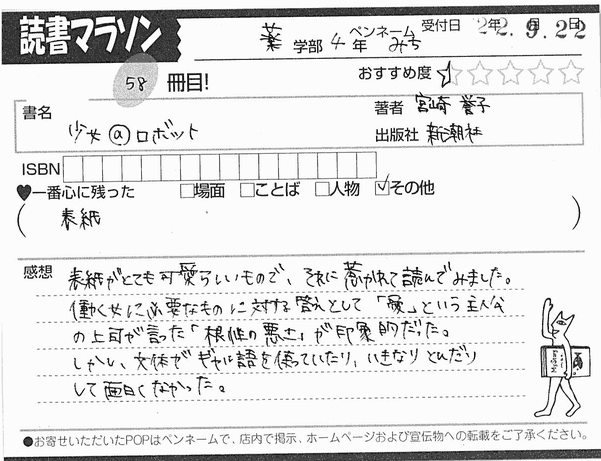 読書マラソン
薬 学部 4 年 ペンネーム みち 受付日 22年 9月 22日
58 冊目!
おすすめ度 ☆☆☆☆☆
書名 少女@ロボット
著者 宮崎 誉子
出版社 新潮社
ISBN
♥一番心に残った □場面 □ことば □人物 ☑その他
(表紙)
感想 表紙がとても可愛らしいもので、それに惹かれて読んでみました。
働く女に必要なものに対する答えとして「愛」という主人公
の上司が言った「根性の悪さ」が印象的だった。
しかし、文体がギャル語を使っていたり、いきなりとんだり
して面白くなかった。
●お寄せいただいたPOPはペンネームで、店内で掲示、ホームページおよび宣伝物への転載をご了承ください。